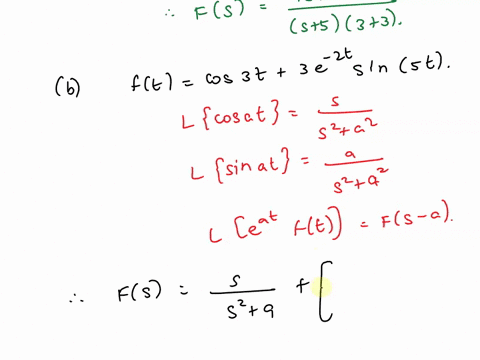 ∴ F(s) = / (s+5)(3+3).
(b) f(t) = cos 3t + 3 e^{-2t} sin (5t).
L {cos at} = s / (s² + a²)
L {sin at} = a / (s² + a²)
L [e^{at} f(t)] = F(s-a).
∴ F(s) = s / (s² + 9) + [